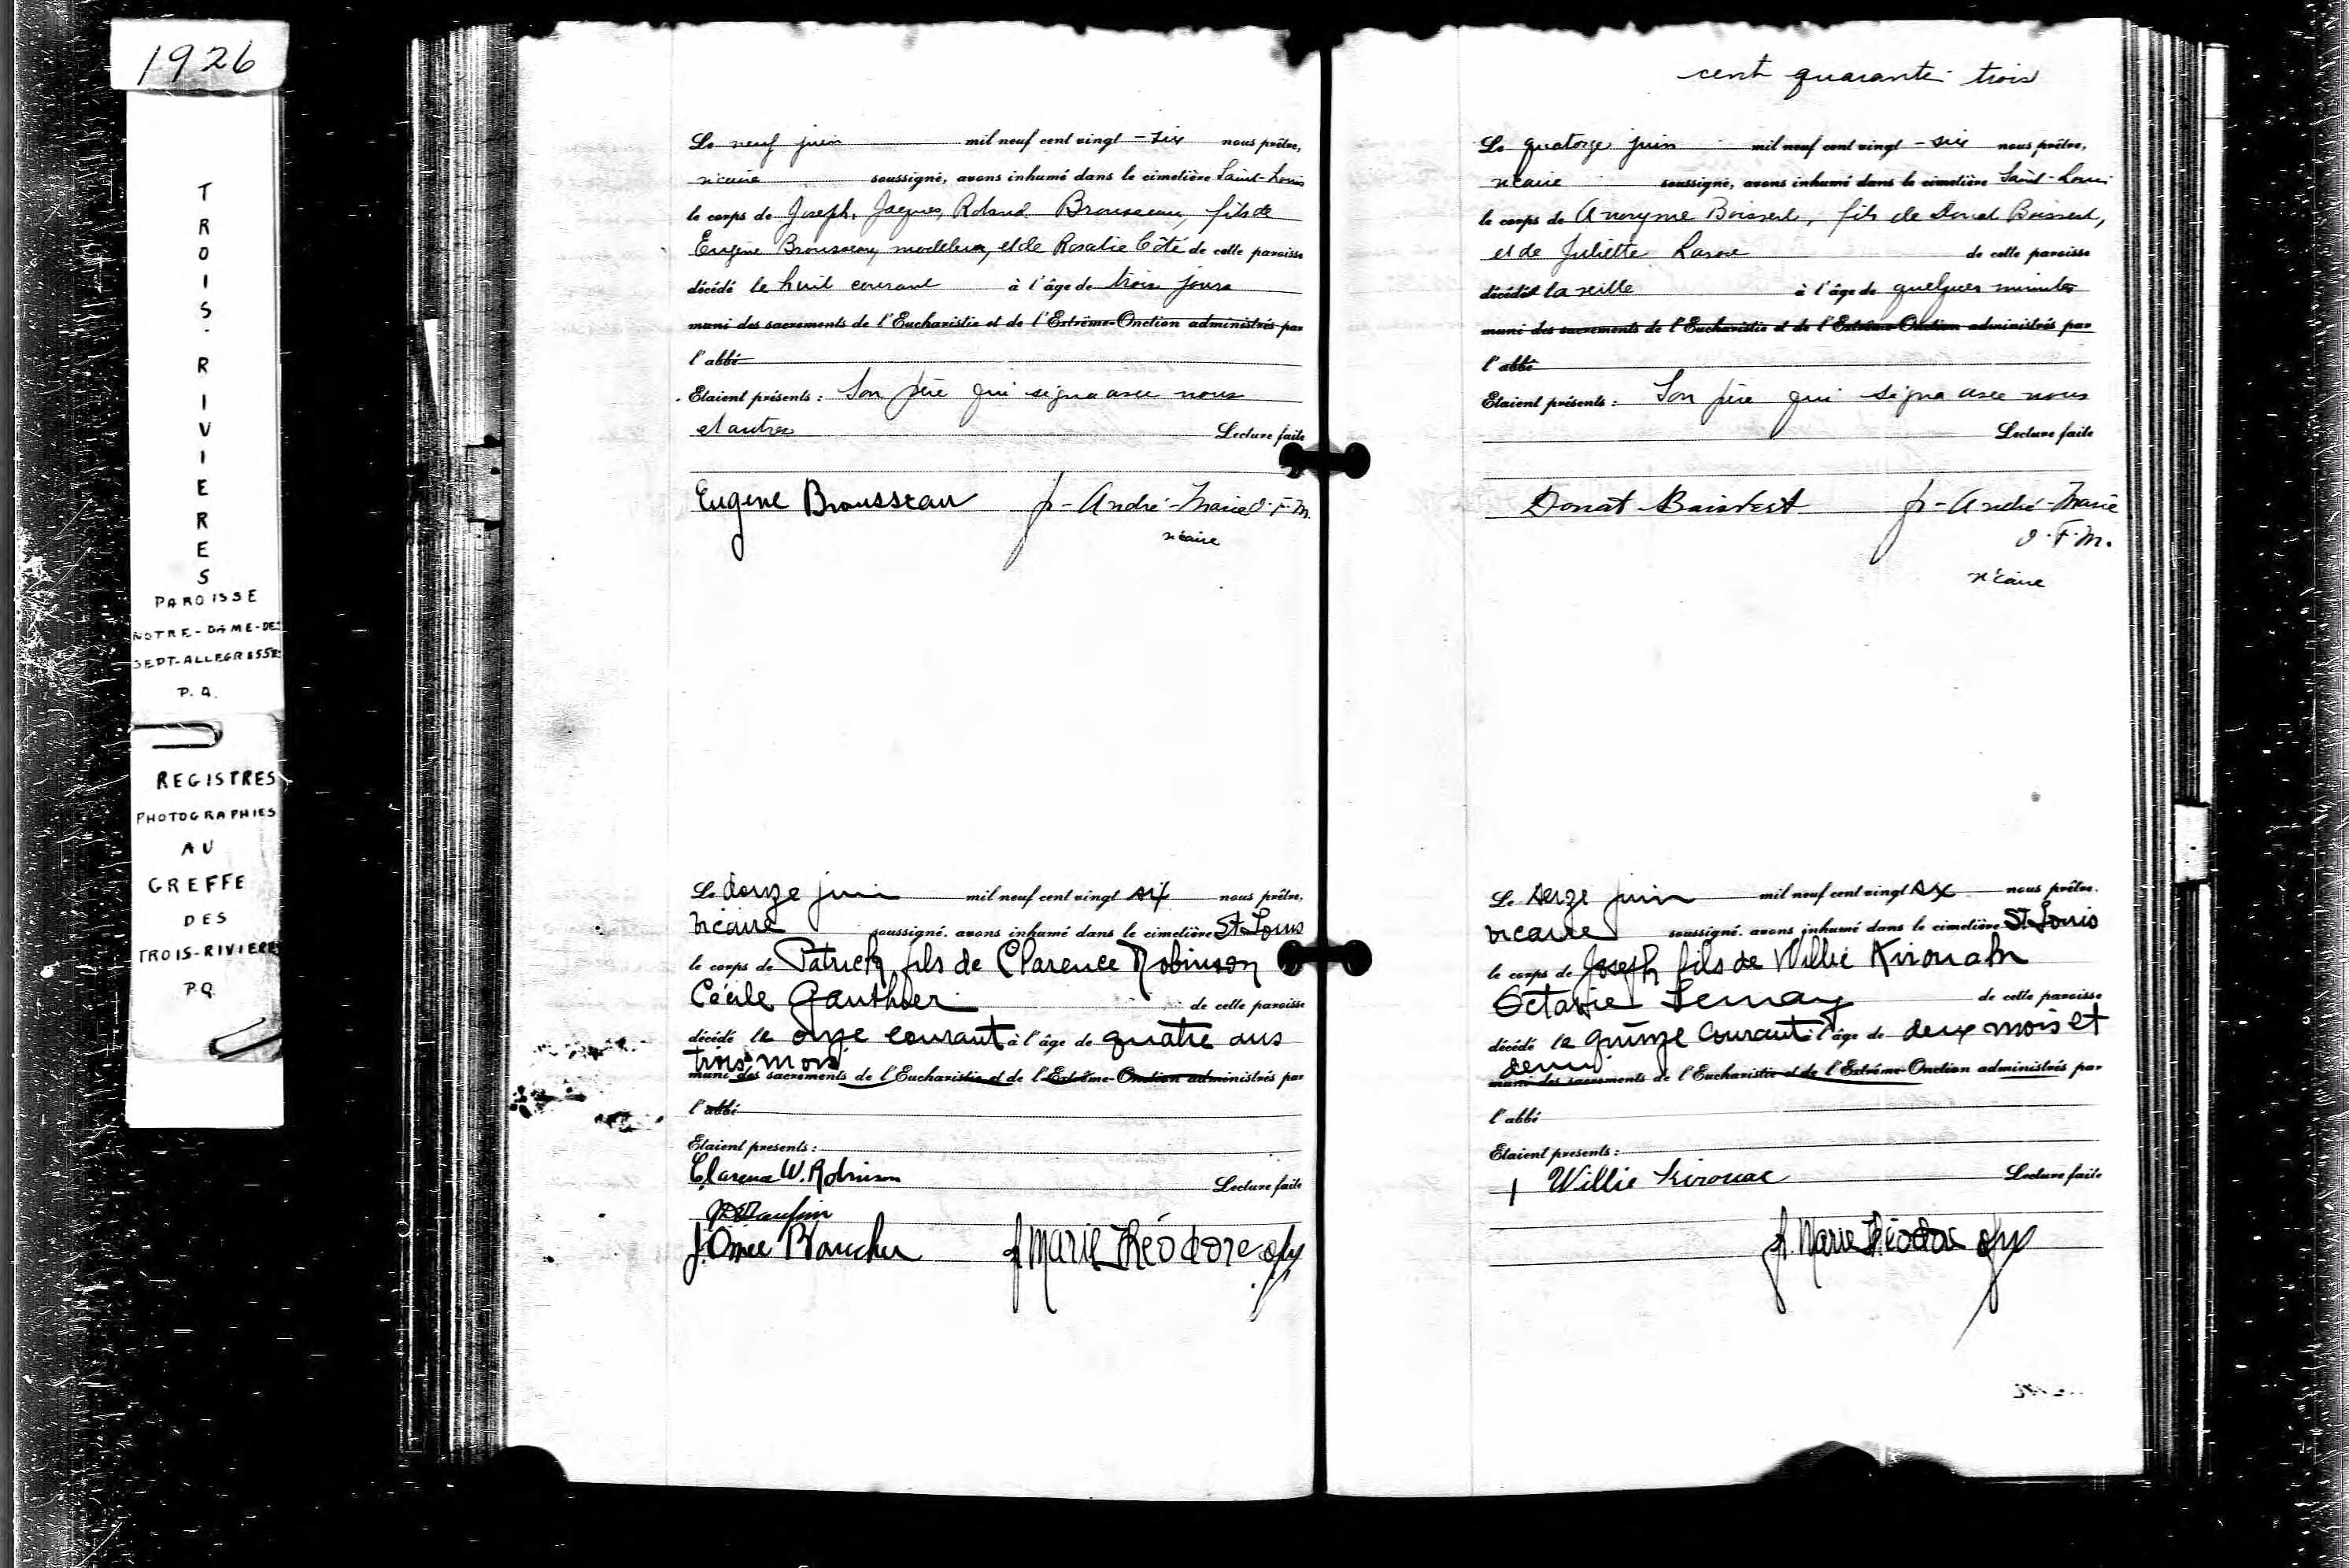 1926
TROIS-RIVIERES
PAROISSE
NOTRE-DAME-DES
SEPT-ALLEGRESSES
P.Q.
REGISTRES
PHOTOGRAPHIES
AU
GREFFE
DES
TROIS-RIVIERES
P.Q.
Le neuf juin mil neuf cent vingt-six nous prêtre,
vicaire soussigné, avons inhumé dans le cimetière Saint-Louis
le corps de Joseph, Jacques, Roland Brousseau, fils de
Eugène Brousseau, modeleur, et de Rosalie Côté de cette paroisse
décédé le huit courant à l'âge de trois jours
muni des sacrements de l'Eucharistie et de l'Extrême-Onction administrés par
l'abbé
Etaient présents : Son père qui signa avec nous
et autres Lecture faite
Eugène Brousseau fr-André-Marie O.F.M.
vicaire
Le douze juin mil neuf cent vingt six nous prêtre,
vicaire soussigné, avons inhumé dans le cimetière St Louis
le corps de Patrick fils de Clarence Robinson
Cécile Gauthier de cette paroisse
décédé le onze courant à l'âge de quatre ans
trois mois
muni des sacrements de l'Eucharistie et de l'Extrême-Onction administrés par
l'abbé
Etaient presents :
Clarence W. Robinson Lecture faite
J. Omer Blanchu fr Marie Théodore ofm
cent quarante-trois
Le quatorze juin mil neuf cent vingt-six nous prêtre,
vicaire soussigné, avons inhumé dans le cimetière Saint-Louis
le corps de Anonyme Boisvert, fils de Donat Boisvert,
et de Juliette de cette paroisse
décédé la veille à l'âge de quelques minutes
muni des sacrements de l'Eucharistie et de l'Extrême-Onction administrés par
l'abbé
Etaient présents : Son père qui signa avec nous
Lecture faite
Donat Boisvert fr-André-Marie
O.F.M.
vicaire
Le seize juin mil neuf cent vingt six nous prêtre.
vicaire soussigné. avons inhumé dans le cimetière St Louis
le corps de Joseph fils de Willie Kirouak
Octavie Lemay de cette paroisse
décédé le quinze courant à l'âge de deux mois et
demi
muni des sacrements de l'Eucharistie et de l'Extrême-Onction administrés par
l'abbé
Etaient presents :
Willie Kirouac Lecture faite
fr. Marie Théodore ofm